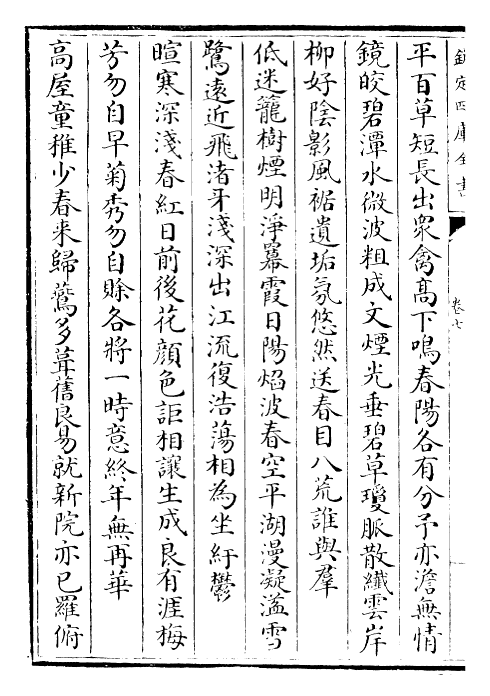 欽定四庫全書
卷七
平百草短長出衆禽髙下鳴春陽各有分予亦澹無情
鏡皎碧潭水微波粗成文煙光垂碧草瓊脈散纖雲岸
柳好陰影風裾遺垢氛悠然送春目八荒誰與羣
低迷籠樹煙明淨冪霞日陽焰波春空平湖漫凝溢雪
鷺遠近飛渚牙淺深出江流復浩蕩相為坐紆鬱
暄寒深淺春紅日前後花顔色詎相讓生成良有涯梅
芳勿自早菊秀勿自賒各將一時意終年無再華
高屋童稚少春来歸鷰多葺舊良易就新院亦已羅俯